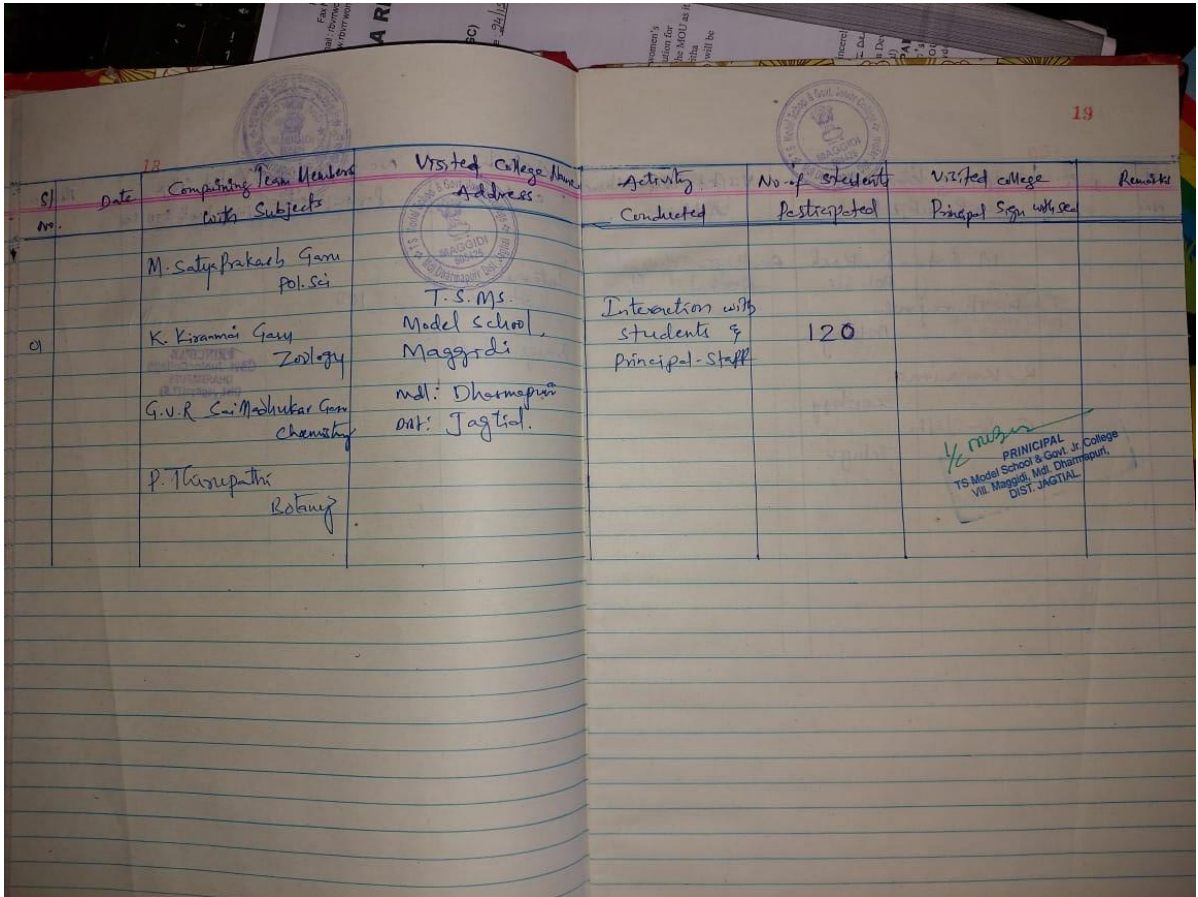 Fax
A RI
GC)
women's
ution for
he MOU as it
itha
will be
18
19
Sl No.
Date
Compaining Team Members
with Subjects
Vissted College Name
Address
Activity
Conducted
No. of students
Pasticipated
Visited college
Principal Sign with seal
Remarks
01
M. Satya Prakash Garu
Pol. Sci
K. Kiranmai Garu
Zoology
G.V.R Sai Madhukar Garu
Chemistry
P. Thirupathi
Botany
T.S.MS.
Model School,
Maggidi
Mdl: Dharmapuri
Dist: Jagtial.
Interaction with
students &
Principal-Staff
120
I/c
PRINICIPAL
TS Model School & Govt. Jr. College
Vill. Maggidi, Mdl. Dharmapuri,
DIST. JAGTIAL
MAGGIDI